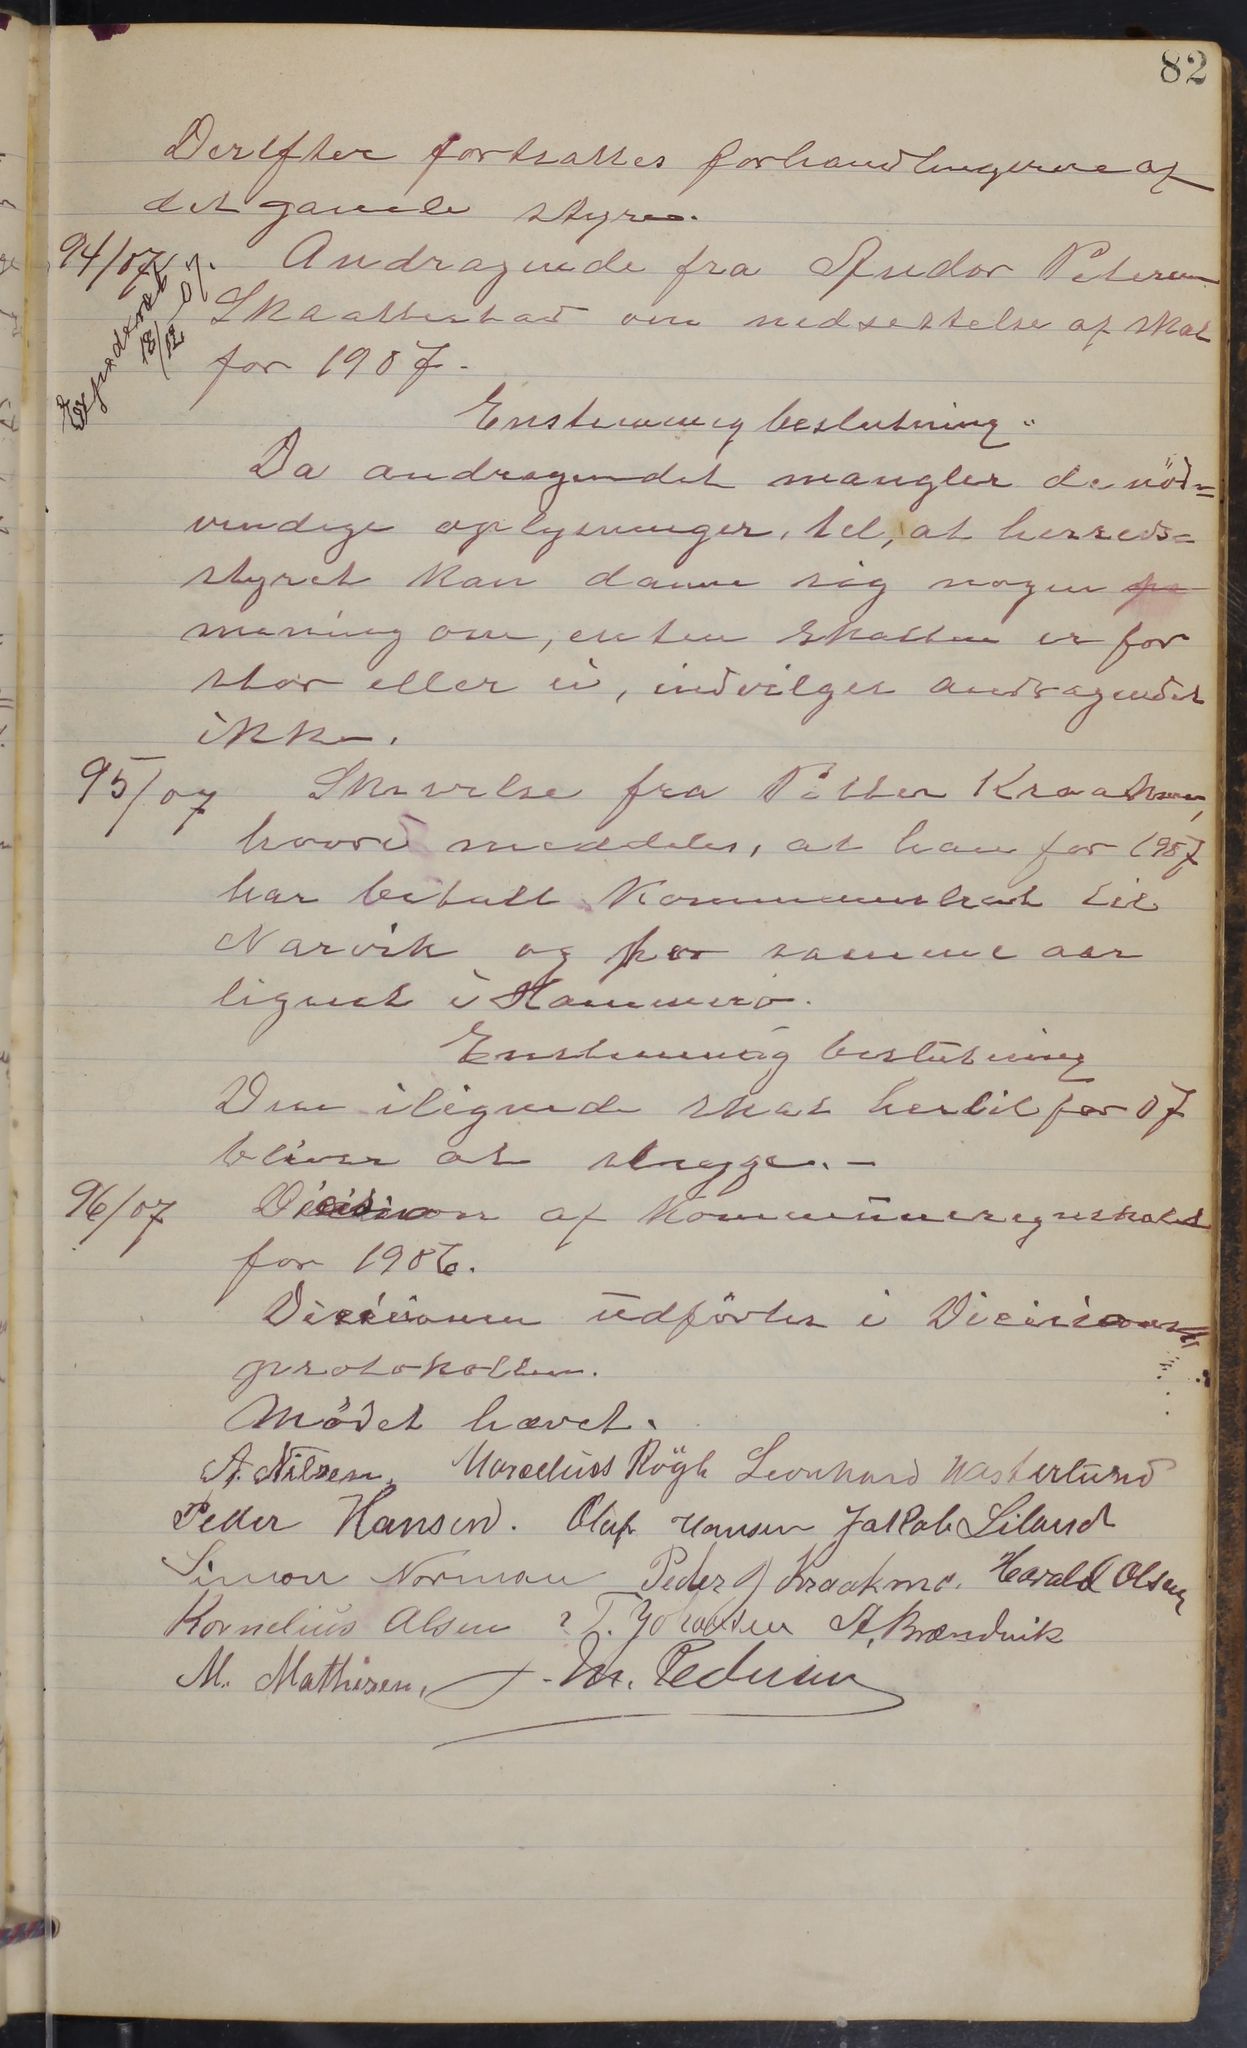 82
Derefter fortsattes forhandlingerne af
det gamle styre.
94/07. Andragende fra Andor Petersen
Expederet 18/12 07.
Skaattestad om nedsettelse af skat
for 1907.
Enstemmig beslutning:
Da andragendet mangler de nöd=
vendige oplysninger, til, at herreds=
styret kan danne sig nogen
mening om, enten skatten er for
stor eller ei, indvilges andragendet
ikke.
95/07 Skrivelse fra Petter Kraakmo,
hvori meddeles, at han for 1907
har betalt Kommuneskat til
Narvik og for samme aar
lignet i Hammerö.
Enstemmig beslutning
Den ilignede skat hertil for 07
bliver at stryge. -
96/07 Dicision af Kommuneregnskabet
for 1906.
Dicisionen udförtes i Dicisions=
protokollen.
Mödet hævet.
A. Nilsen, Marcelius Rögh Leonhard Westerlund
Peder Hansen. Olaf Hansen Jakob Siland
Simon Norman Peder J Kraakmo. Harald Olsen
Kornelius Olsen T. Johansen A. Brændvik
M. Mathisen, J. M. Pedersen